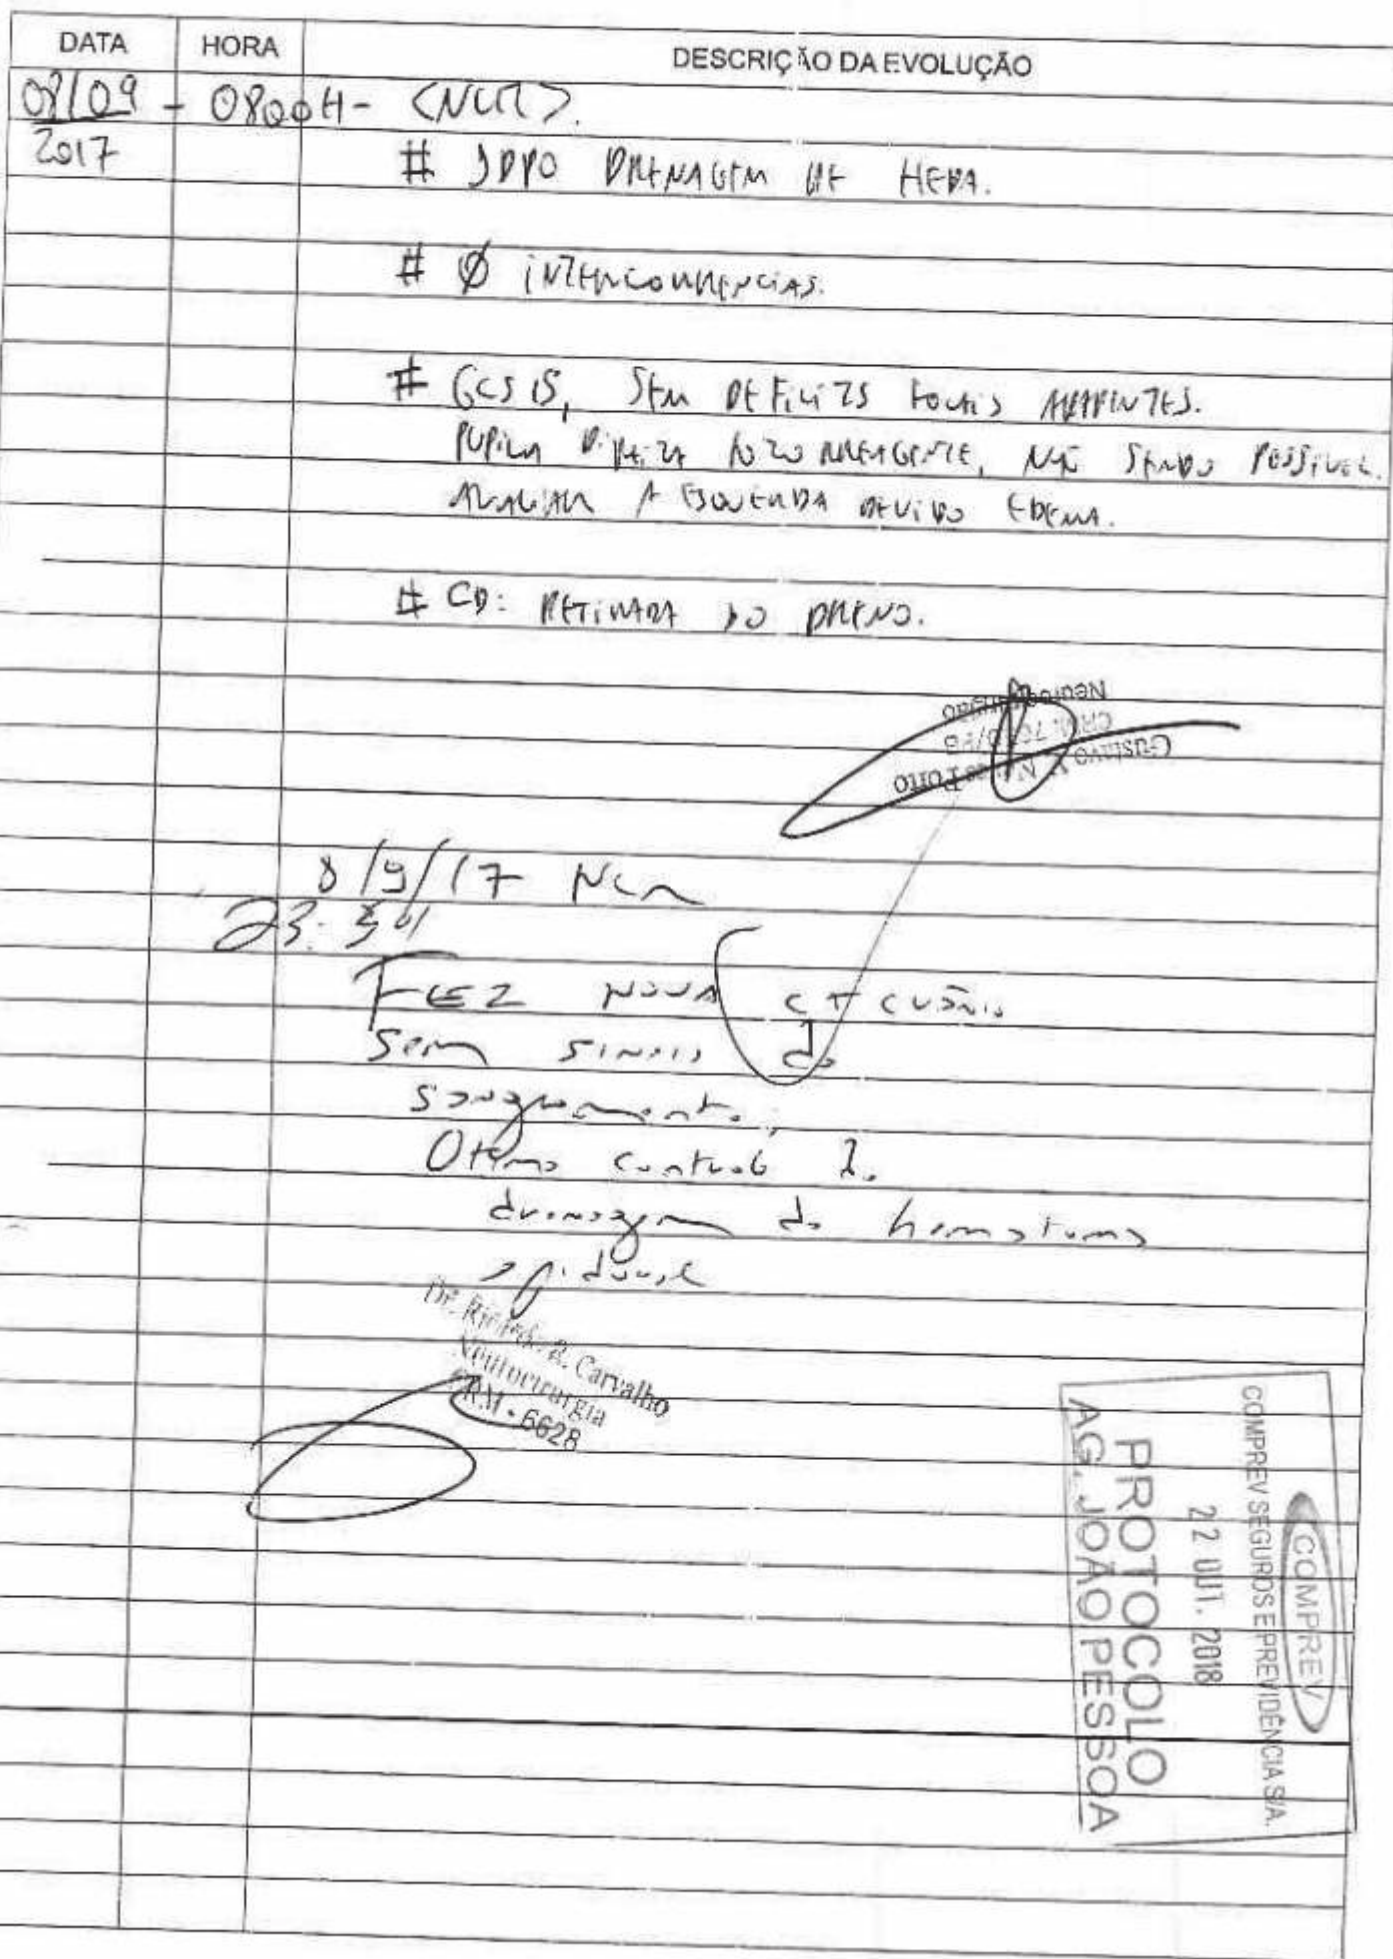 DATA HORA DESCRIÇÃO DA EVOLUÇÃO
08/09 - 0800H - <NCR>.
2017
# DPO DRENAGEM DE HEDA.
# Ø INTERCORRENCIAS.
# GCS 15, SEM DEFICITS FOCAIS APARENTES.
PUPILA DIREITA FOTORREAGENTE, NÃO SENDO POSSÍVEL
AVALIAR A ESQUERDA DEVIDO EDEMA.
# CD: RETIRADA DO DRENO.
Neurocirurgião
CRM
Gustavo Porto
8/9/17 NCR
23:54
FEZ NOVA CT CRÂNIO
sem sinais de
sangramento;
Otimo controle de
drenagem de hematoma
epidural
Dr. Ricardo B. Carvalho
Neurocirurgia
CRM - 6628
COMPREV
COMPREV SEGUROS E PREVIDÊNCIA S/A.
22 OUT. 2018
PROTOCOLO
AG. JOÃO PESSOA